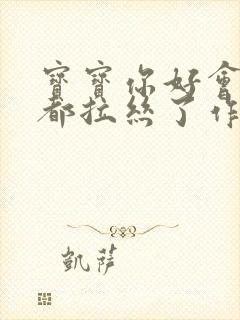 寶寶你好會
都拉絲了作
凱薩